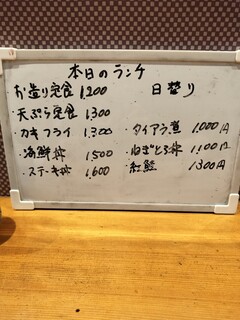 本日のランチ
お造り定食 1,200
・天ぷら定食 1,300
・カキフライ 1,300
・海鮮丼 1,500
・ステーキ丼 1,600
日替り
・タイアラ煮 1,000円
・ねぎとろ丼 1,100円
・紅鮭 1,300円